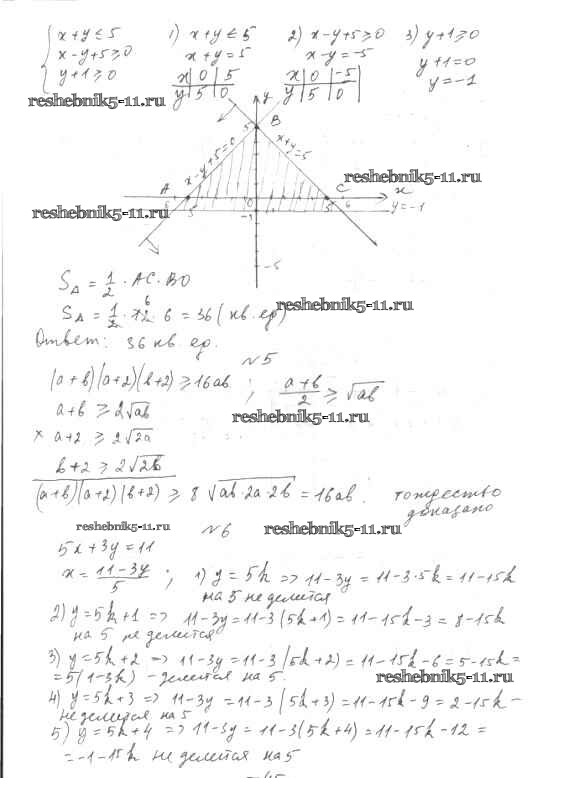 { x+y≤5   1) x+y≤5   2) x-y+5≥0   3) y+1≥0
x-y+5≥0   x+y=5   x-y=-5   y+1=0
y+1≥0   x|0|5   x|0|-5   y=-1
reshebnik5-11.ru   y|5|0   y|5|0
y
5 B
x-y+5=0   x+y=5
reshebnik5-11.ru
A   C   x
reshebnik5-11.ru   5   0   5   6   y=-1
-1
-5
S∆ = 1/2 · AC · BO
reshebnik5-11.ru
S∆ = 1/2 · 12 · 6 = 36 (кв. ед)
6
Ответ: 36 кв. ед.
№5
(a+b)(a+2)(b+2)≥16ab ; (a+b)/2 ≥ √ab
a+b ≥ 2√ab
reshebnik5-11.ru
× a+2 ≥ 2√2a
b+2 ≥ 2√2b
(a+b)(a+2)(b+2) ≥ 8√ab·2a·2b = 16ab. тождество
доказано
reshebnik5-11.ru   №6   reshebnik5-11.ru
5x+3y=11
x = (11-3y)/5 ; 1) y=5k => 11-3y = 11-3·5k = 11-15k
на 5 не делится
2) y=5k+1 => 11-3y=11-3(5k+1)=11-15k-3=8-15k
на 5 не делится
3) y=5k+2 => 11-3y=11-3(5k+2)=11-15k-6=5-15k=
=5(1-3k) - делится на 5.   reshebnik5-11.ru
4) y=5k+3 => 11-3y=11-3(5k+3)=11-15k-9=2-15k-
не делится на 5
5) y=5k+4 => 11-3y=11-3(5k+4)=11-15k-12=
=-1-15k не делится на 5